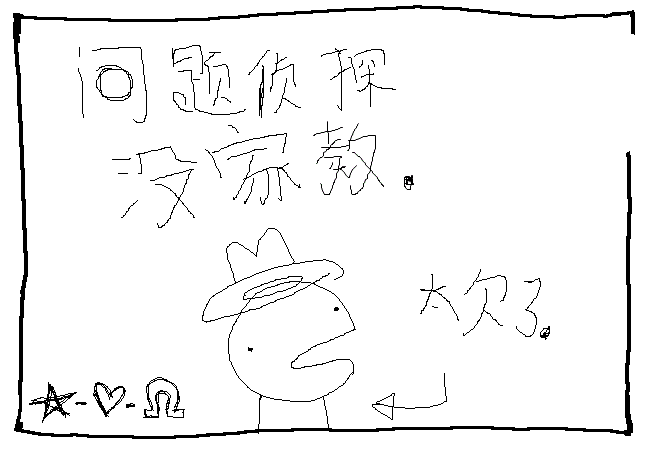 问题侦探
没家教.
太欠了.
★-♡-Ω